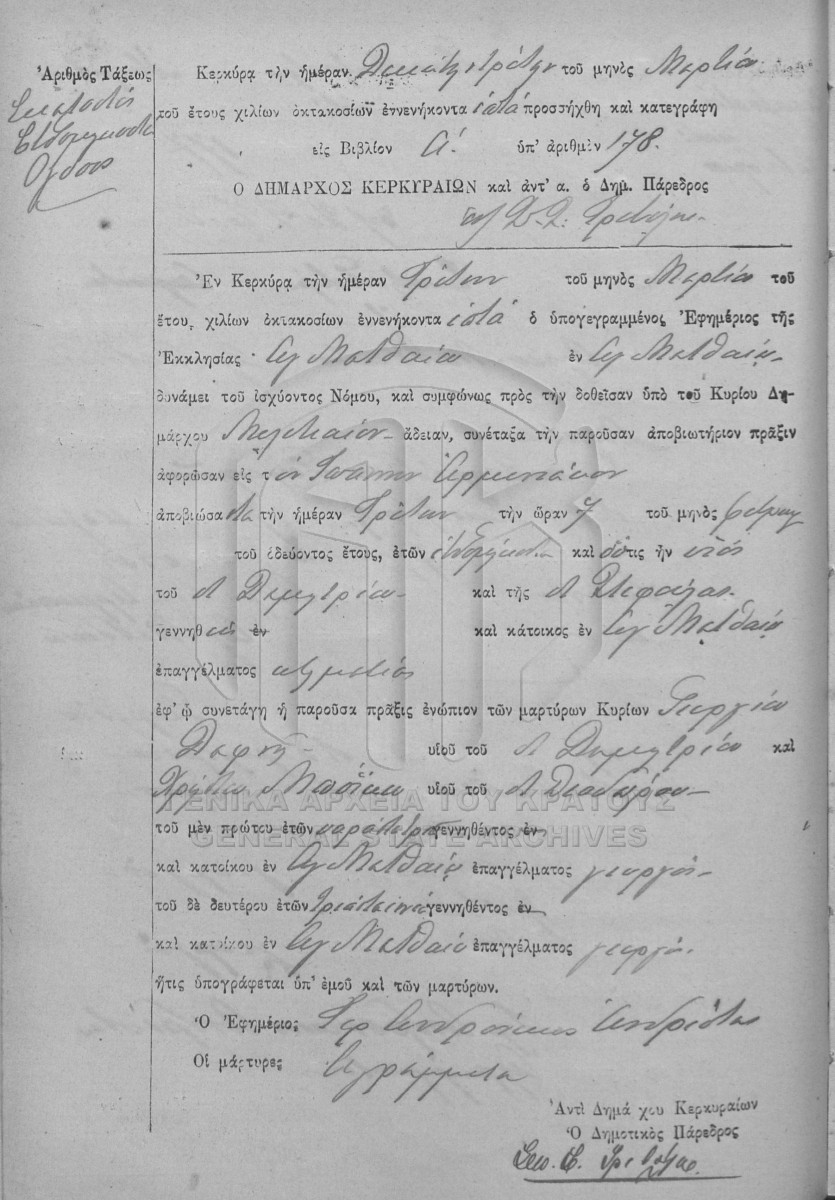 Ἀριθμὸς Τάξεως
Ἑκατοστός
Ἑβδομηκοστός
Ὄγδοος
Κερκύρα τὴν ἡμέραν Δεκάτην τρίτην τοῦ μηνὸς Μαρτίου
τοῦ ἔτους χιλίων ὀκτακοσίων ἐννενήκοντα ἑπτὰ προσήχθη καὶ κατεγράφη
εἰς Βιβλίον Α΄. ὑπ' ἀριθμὸν 178.
Ο ΔΗΜΑΡΧΟΣ ΚΕΡΚΥΡΑΙΩΝ καὶ ἀντ' α. ὁ Δημ. Πάρεδρος
Ἐν Κερκύρᾳ τὴν ἡμέραν Τρίτην τοῦ μηνὸς Μαρτίου τοῦ
ἔτους χιλίων ὀκτακοσίων ἐννενήκοντα ἑπτά ὁ ὑπογεγραμμένος Ἐφημέριος τῆς
Ἐκκλησίας Ἁγ Ματθαίου ἐν Ἁγ Ματθαίῳ
δυνάμει τοῦ ἰσχύοντος Νόμου, καὶ συμφώνως πρὸς τὴν δοθεῖσαν ὑπὸ τοῦ Κυρίου Δη-
μάρχου Μελιτιαίων ἄδειαν, συνέταξα τὴν παροῦσαν ἀποβιωτήριον πρᾶξιν
ἀφορῶσαν εἰς τὸν Ἰωάννην
ἀποβιώσαντα τὴν ἡμέραν Τρίτην τὴν ὥραν 7 τοῦ μηνὸς
τοῦ ὁδεύοντος ἔτους, ἐτῶν ἑβδομήκοντα καὶ ὅστις ἦν υἱός
τοῦ π Δημητρίου καὶ τῆς π Στεφανίας
γεννηθεὶς ἐν καὶ κάτοικος ἐν Ἁγ Ματθαίῳ
ἐπαγγέλματος κτηματίας
ἐφ' ᾧ συνετάγη ἡ παροῦσα πρᾶξις ἐνώπιον τῶν μαρτύρων Κυρίων Γεωργίου
Δαφνῆ υἱοῦ τοῦ π Δημητρίου καὶ
Χρήστου υἱοῦ τοῦ π Θεοδώρου
ΓΕΝΙΚΑ ΑΡΧΕΙΑ ΤΟΥ ΚΡΑΤΟΥΣ
GENERAL STATE ARCHIVES
τοῦ μὲν πρώτου ἐτῶν γεννηθέντος ἐν
καὶ κατοίκου ἐν Ἁγ Ματθαίῳ ἐπαγγέλματος γεωργοῦ
τοῦ δὲ δευτέρου ἐτῶν γεννηθέντος ἐν
καὶ κατοίκου ἐν Ἁγ Ματθαίῳ ἐπαγγέλματος γεωργοῦ
ἥτις ὑπογράφεται ὑπ' ἐμοῦ καὶ τῶν μαρτύρων.
Ὁ Ἐφημέριος Ἱερ Ἀνδρόνικος
Οἱ μάρτυρες Ἀγράμματοι
Ἀντὶ Δημά χου Κερκυραίων
Ὁ Δημοτικὸς Πάρεδρος